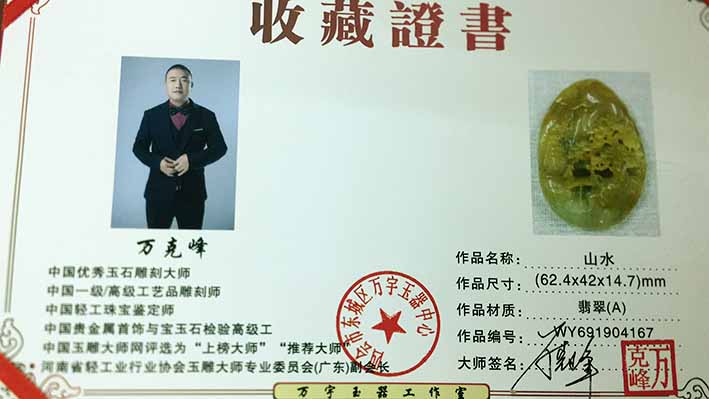 收藏證書
万克峰
中国优秀玉石雕刻大师
中国一级/高级工艺品雕刻师
中国轻工珠宝鉴定师
中国贵金属首饰与宝玉石检验高级工
中国玉雕大师网评选为“上榜大师”“推荐大师”
·河南省轻工业行业协会玉雕大师专业委员会(广东)副会长
四会市东城区万宇玉器中心
作品名称: 山水
作品尺寸: (62.4x42x14.7)mm
作品材质: 翡翠(A)
作品编号: WY691904167
大师签名:
万克峰
万宇玉器工作室